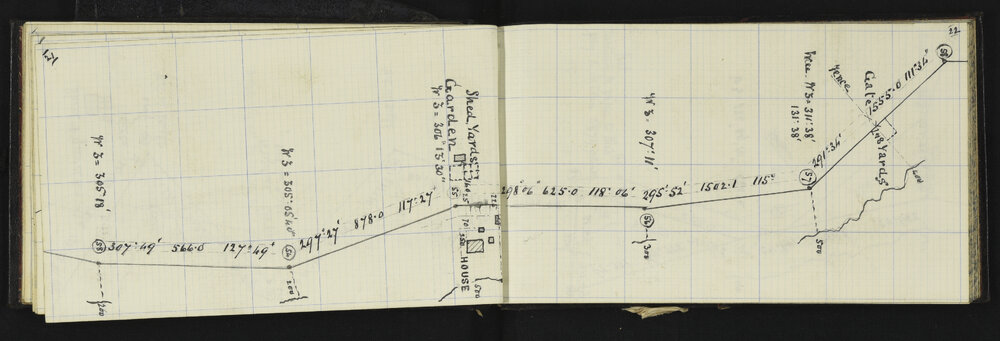 22
58
111°34'
555.0
Gate
Fence
148
Yards
600
Tree
131°38'
291°34'
57
500
115°
1502.1
295°52'
307°11'
56
300
118°06'
625.0
298°06'
Shed, Yards
Garden
306°13'30"
55
70
HOUSE
500
117°27'
878.0
297°27'
305°05'40"
54
200
127°49'
566.0
307°49'
305°18'
53
200